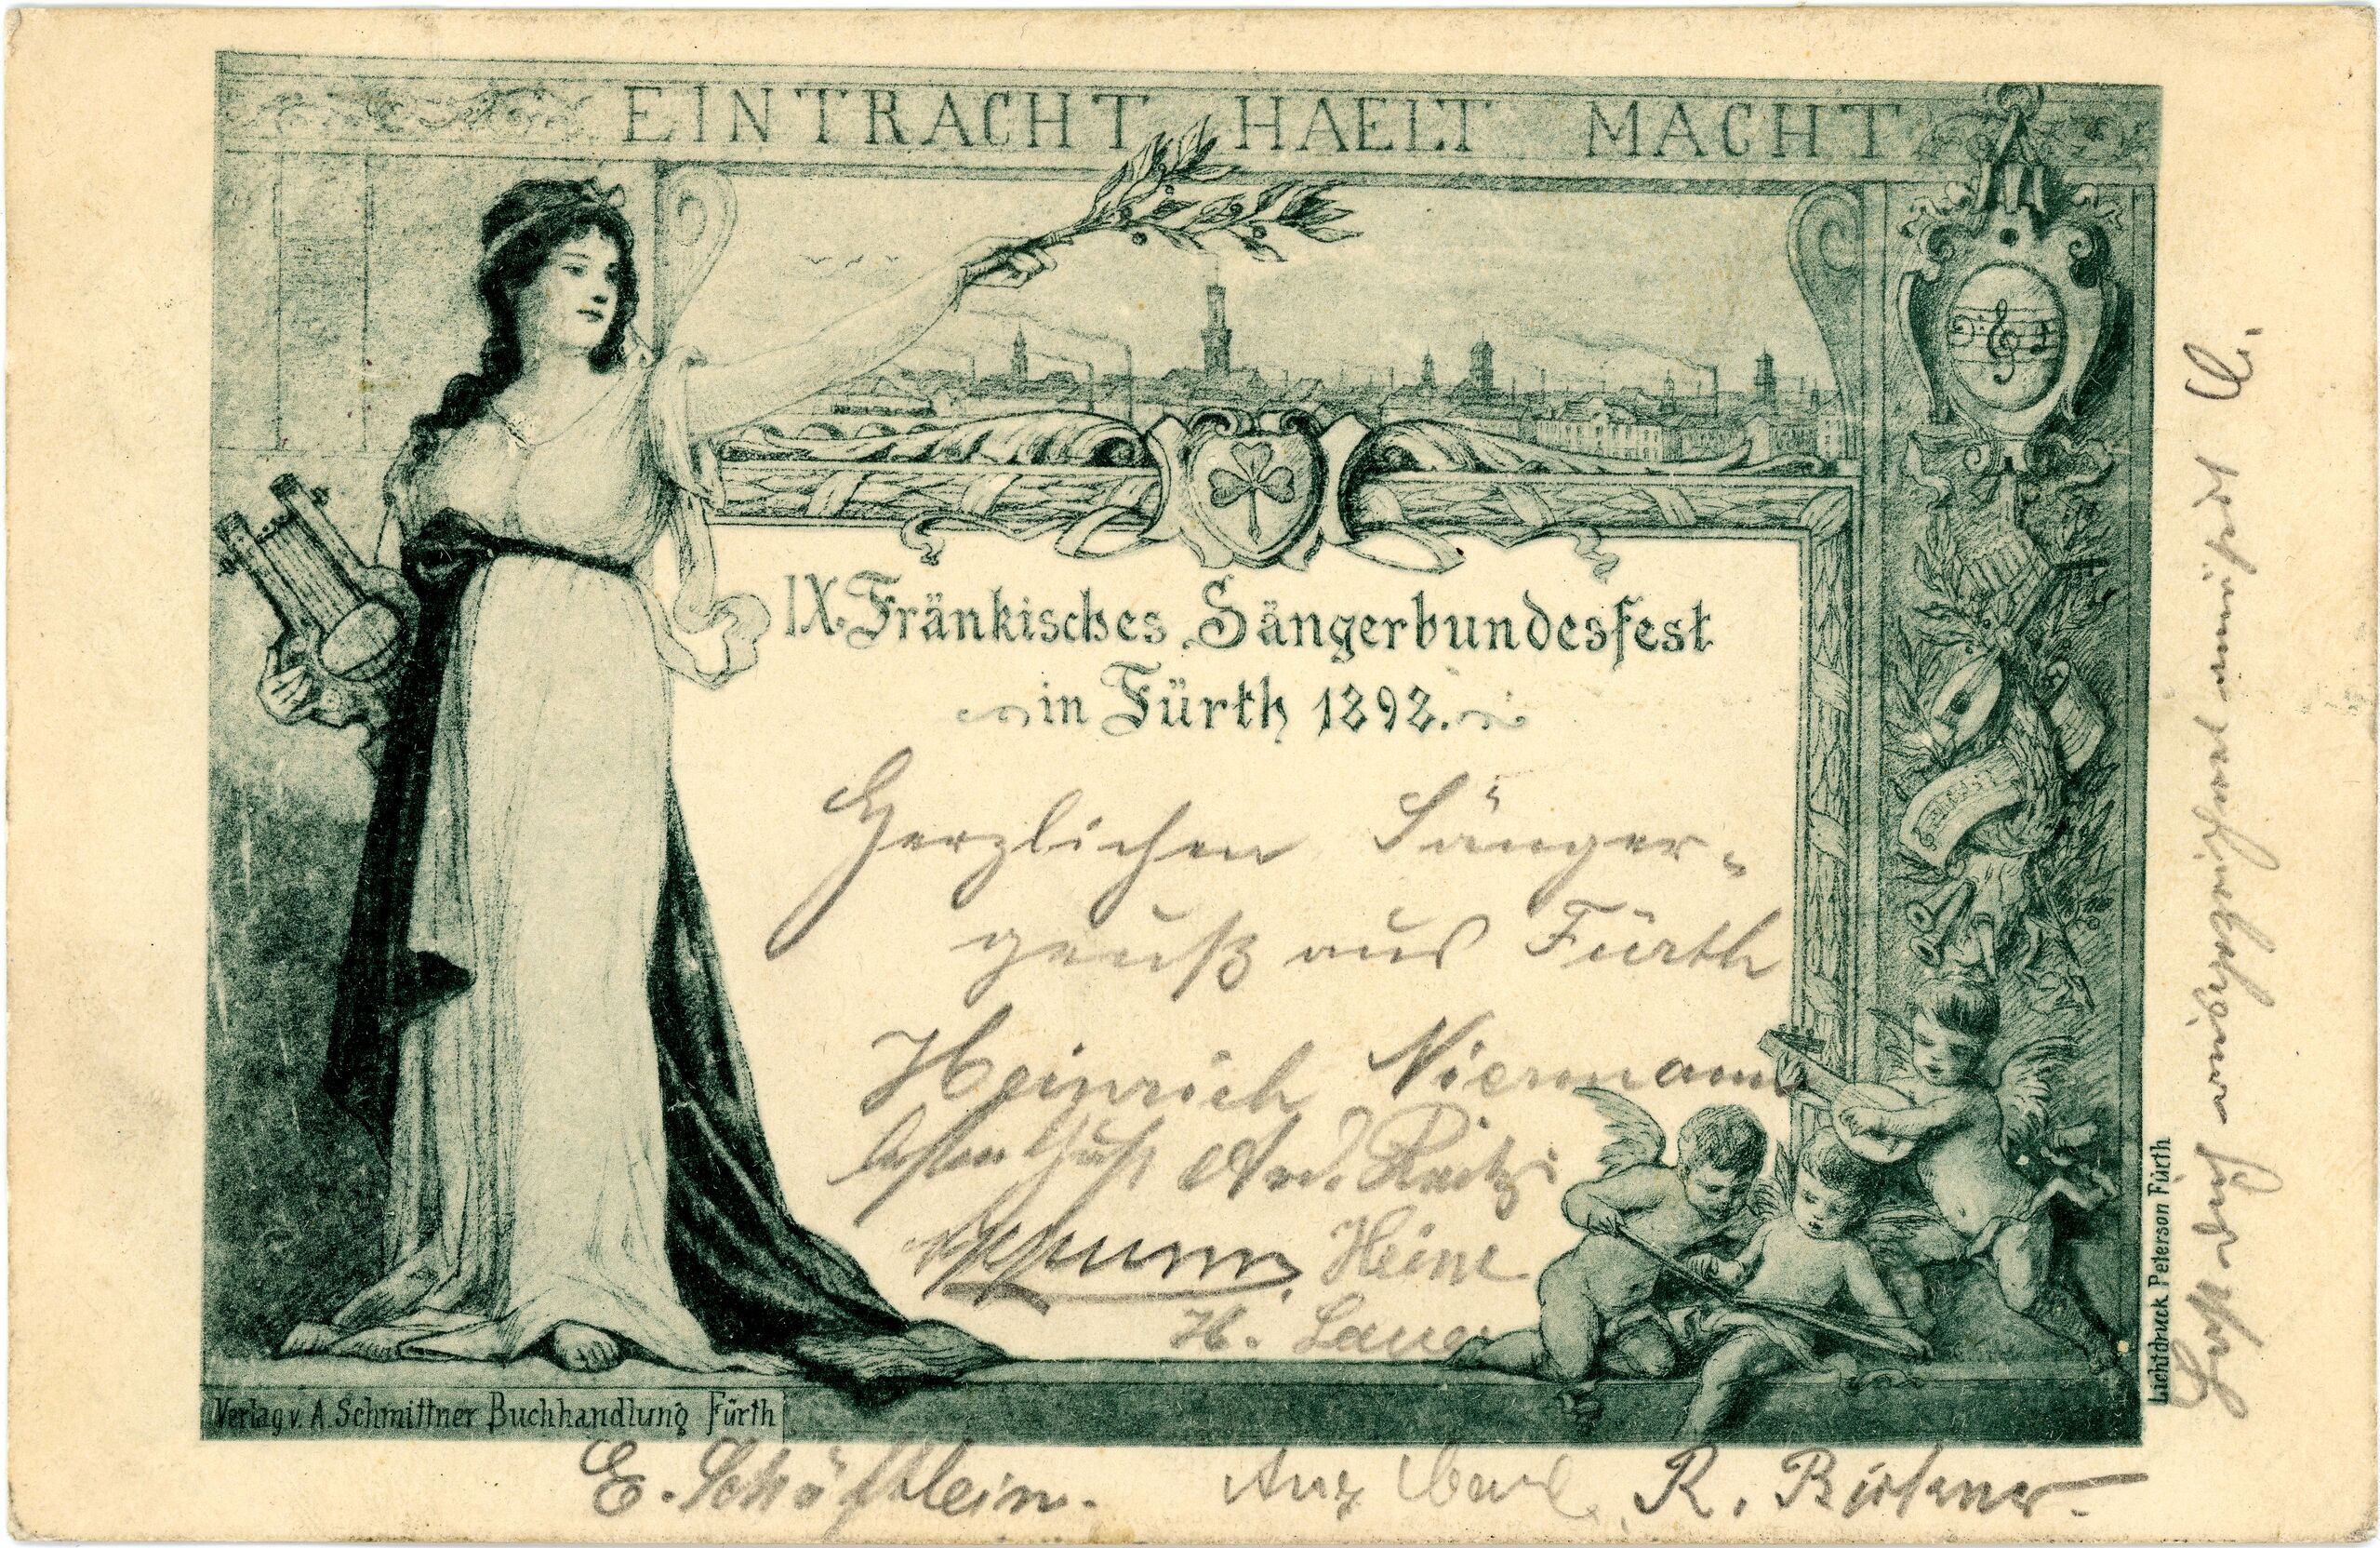 EINTRACHT HAELT MACHT
IX. Fränkisches Sängerbundesfest
in Fürth 1898.
Herzlichen Sänger-
gruß aus Fürth
Heinrich Niermann
Reitz
Heinr
H. Lauer
Verlag v. A. Schmittner Buchhandlung Fürth
Lichtdruck Peterson Fürth
E. Schäftlein.
R. Büttner.